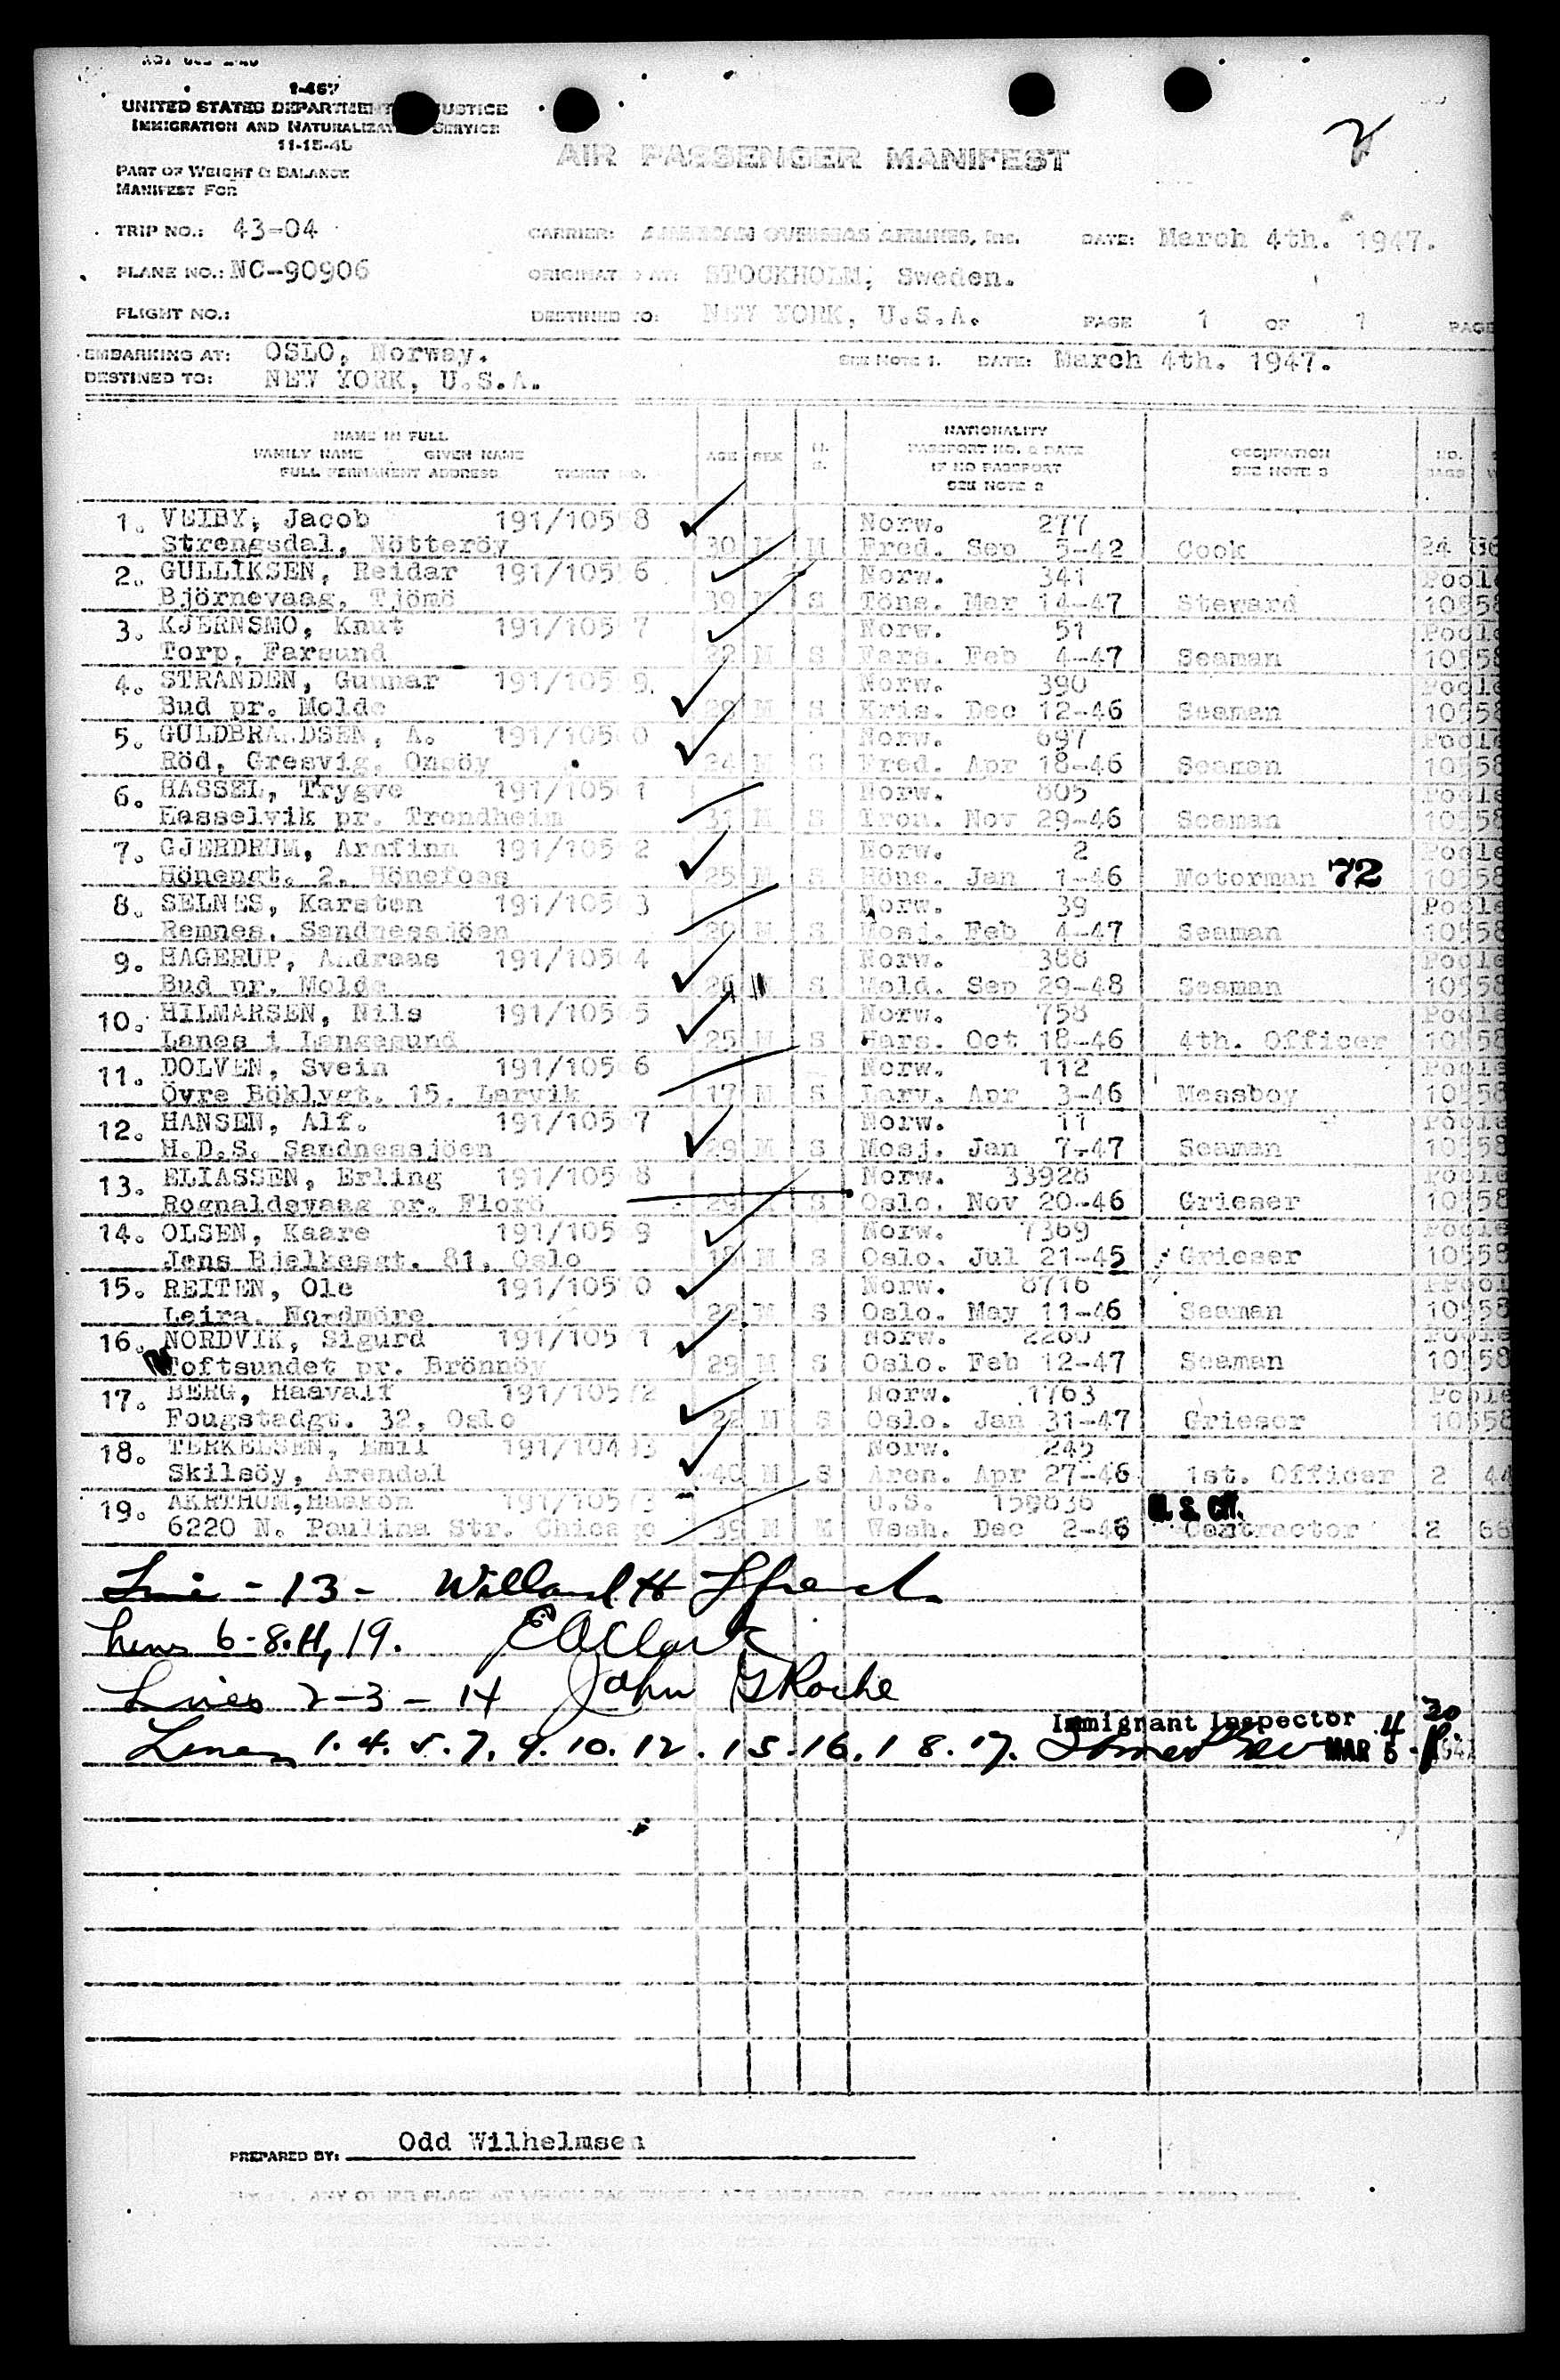 1-467
UNITED STATES DEPARTMENT JUSTICE
IMMIGRATION AND NATURALIZAT SERVICE
11-15-45
AIR PASSENGER MANIFEST
2
PART OF WEIGHT & BALANCE
MANIFEST FOR
TRIP NO.: 43-04 CARRIER: AMERICAN OVERSEAS AIRLINES, INC. DATE: March 4th. 1947.
PLANE NO.: NC-90906 ORIGINAT D AT: STOCKHOLM, Sweden.
FLIGHT NO.: DESTINED TO: NEW YORK, U.S.A. PAGE 1 OF 1 PAGE
EMBARKING AT: OSLO, Norway. SEE NOTE 1. DATE: March 4th. 1947.
DESTINED TO: NEW YORK, U.S.A.
NAME IN FULL
FAMILY NAME GIVEN NAME
FULL PERMANENT ADDRESS TICKET NO. AGE SEX
NATIONALITY
PASSPORT NO. & DATE
IF NO PASSPORT
SEE NOTE 2
OCCUPATION
SEE NOTE 3
NO.
BAGS
1. VEIBY, Jacob 191/105 8 Norw. 277
Strengsdal, Nötteröy 30 M M Fred. Sep 5-42 Cook 24
2. GULLIKSEN, Reidar 191/105 6 Norw. 341 Poole
Björnevaag, Tjömö 39 M S Töns. Mar 14-47 Steward 10558
3. KJERNSMO, Knut 191/105 7 Norw. 51 Poole
Torp, Farsund 22 M S Fars. Feb 4-47 Seaman 10558
4. STRANDEN, Gunnar 191/105 9. Norw. 390 Poole
Bud pr. Molde 29 M S Kris. Dec 12-46 Seaman 10558
5. GULDBRANDSEN, A. 191/105 0 Norw. 697 Poole
Röd, Gresvig, Onsöy 24 M S Fred. Apr 18-46 Seaman 10558
6. HASSEL, Trygve 191/105 1 Norw. 805 Poole
Hasselvik pr. Trondheim 31 M S Tron. Nov 29-46 Seaman 10558
7. GJERDRUM, Arnfinn 191/105 2 Norw. 2 Poole
Hönengt. 2, Hönefoss 25 M S Höne. Jan 1-46 Motorman 72 10558
8. SELNES, Karsten 191/105 3 Norw. 39 Poole
Remnes, Sandnessjöen 20 M S Mosj. Feb 4-47 Seaman 10558
9. HAGERUP, Andreas 191/105 4 Norw. 388 Poole
Bud pr. Molde S Mold. Sep 29-48 Seaman 10558
10. HILMARSEN, Nils 191/105 5 Norw. 758 Poole
Lanes i Langesund 25 M S Hars. Oct 18-46 4th. Officer 10558
11. DOLVEN, Svein 191/105 6 Norw. 112 Poole
Övre Böklygt. 15, Larvik 17 M S Larv. Apr 3-46 Messboy 10558
12. HANSEN, Alf. 191/105 7 Norw. 11 Poole
H.D.S. Sandnessjöen 29 M S Mosj. Jan 7-47 Seaman 10558
13. ELIASSEN, Erling 191/105 8 Norw. 33928 Poole
Rognaldsvaag pr. Florö 29 M S Oslo. Nov 20-46 Grieser 10558
14. OLSEN, Kaare 191/105 9 Norw. 7369 Poole
Jens Bjelkesgt. 81, Oslo 18 M S Oslo. Jul 21-45 Grieser 10558
15. REITEN, Ole 191/105 0 Norw. 8716
Leira, Nordmöre 22 M S Oslo. May 11-46 Seaman 10558
16. NORDVIK, Sigurd 191/105 1 Norw. 2260 Poole
Toftsundet pr. Brönnöy 29 M S Oslo. Feb 12-47 Seaman 10558
17. BERG, Haavalt 191/105 2 Norw. 1763 Poole
Fougstadgt. 32, Oslo 22 M S Oslo. Jan 31-47 Grieser 10558
18. TERKELSEN, Emil 191/104 3 Norw. 245
Skilsöy, Arendal 40 M S Aren. Apr 27-46 1st. Officer 2 44
19. 191/105 3 U.S. 159636 U.S. Cit.
6220 N. Paulina Str. Chicago 39 M M Wash. Dec 2-46 Contractor 2 66
Line - 13 - Willard H
Lines 6-8.11, 19. E A Clark
Lines 2-3-14 John G Roche
Immigrant Inspector 4 30 P.
Lines 1.4.5.7.9.10.12.15.16.18.17. MAR 5 - 1947
PREPARED BY: Odd Wilhelmsen